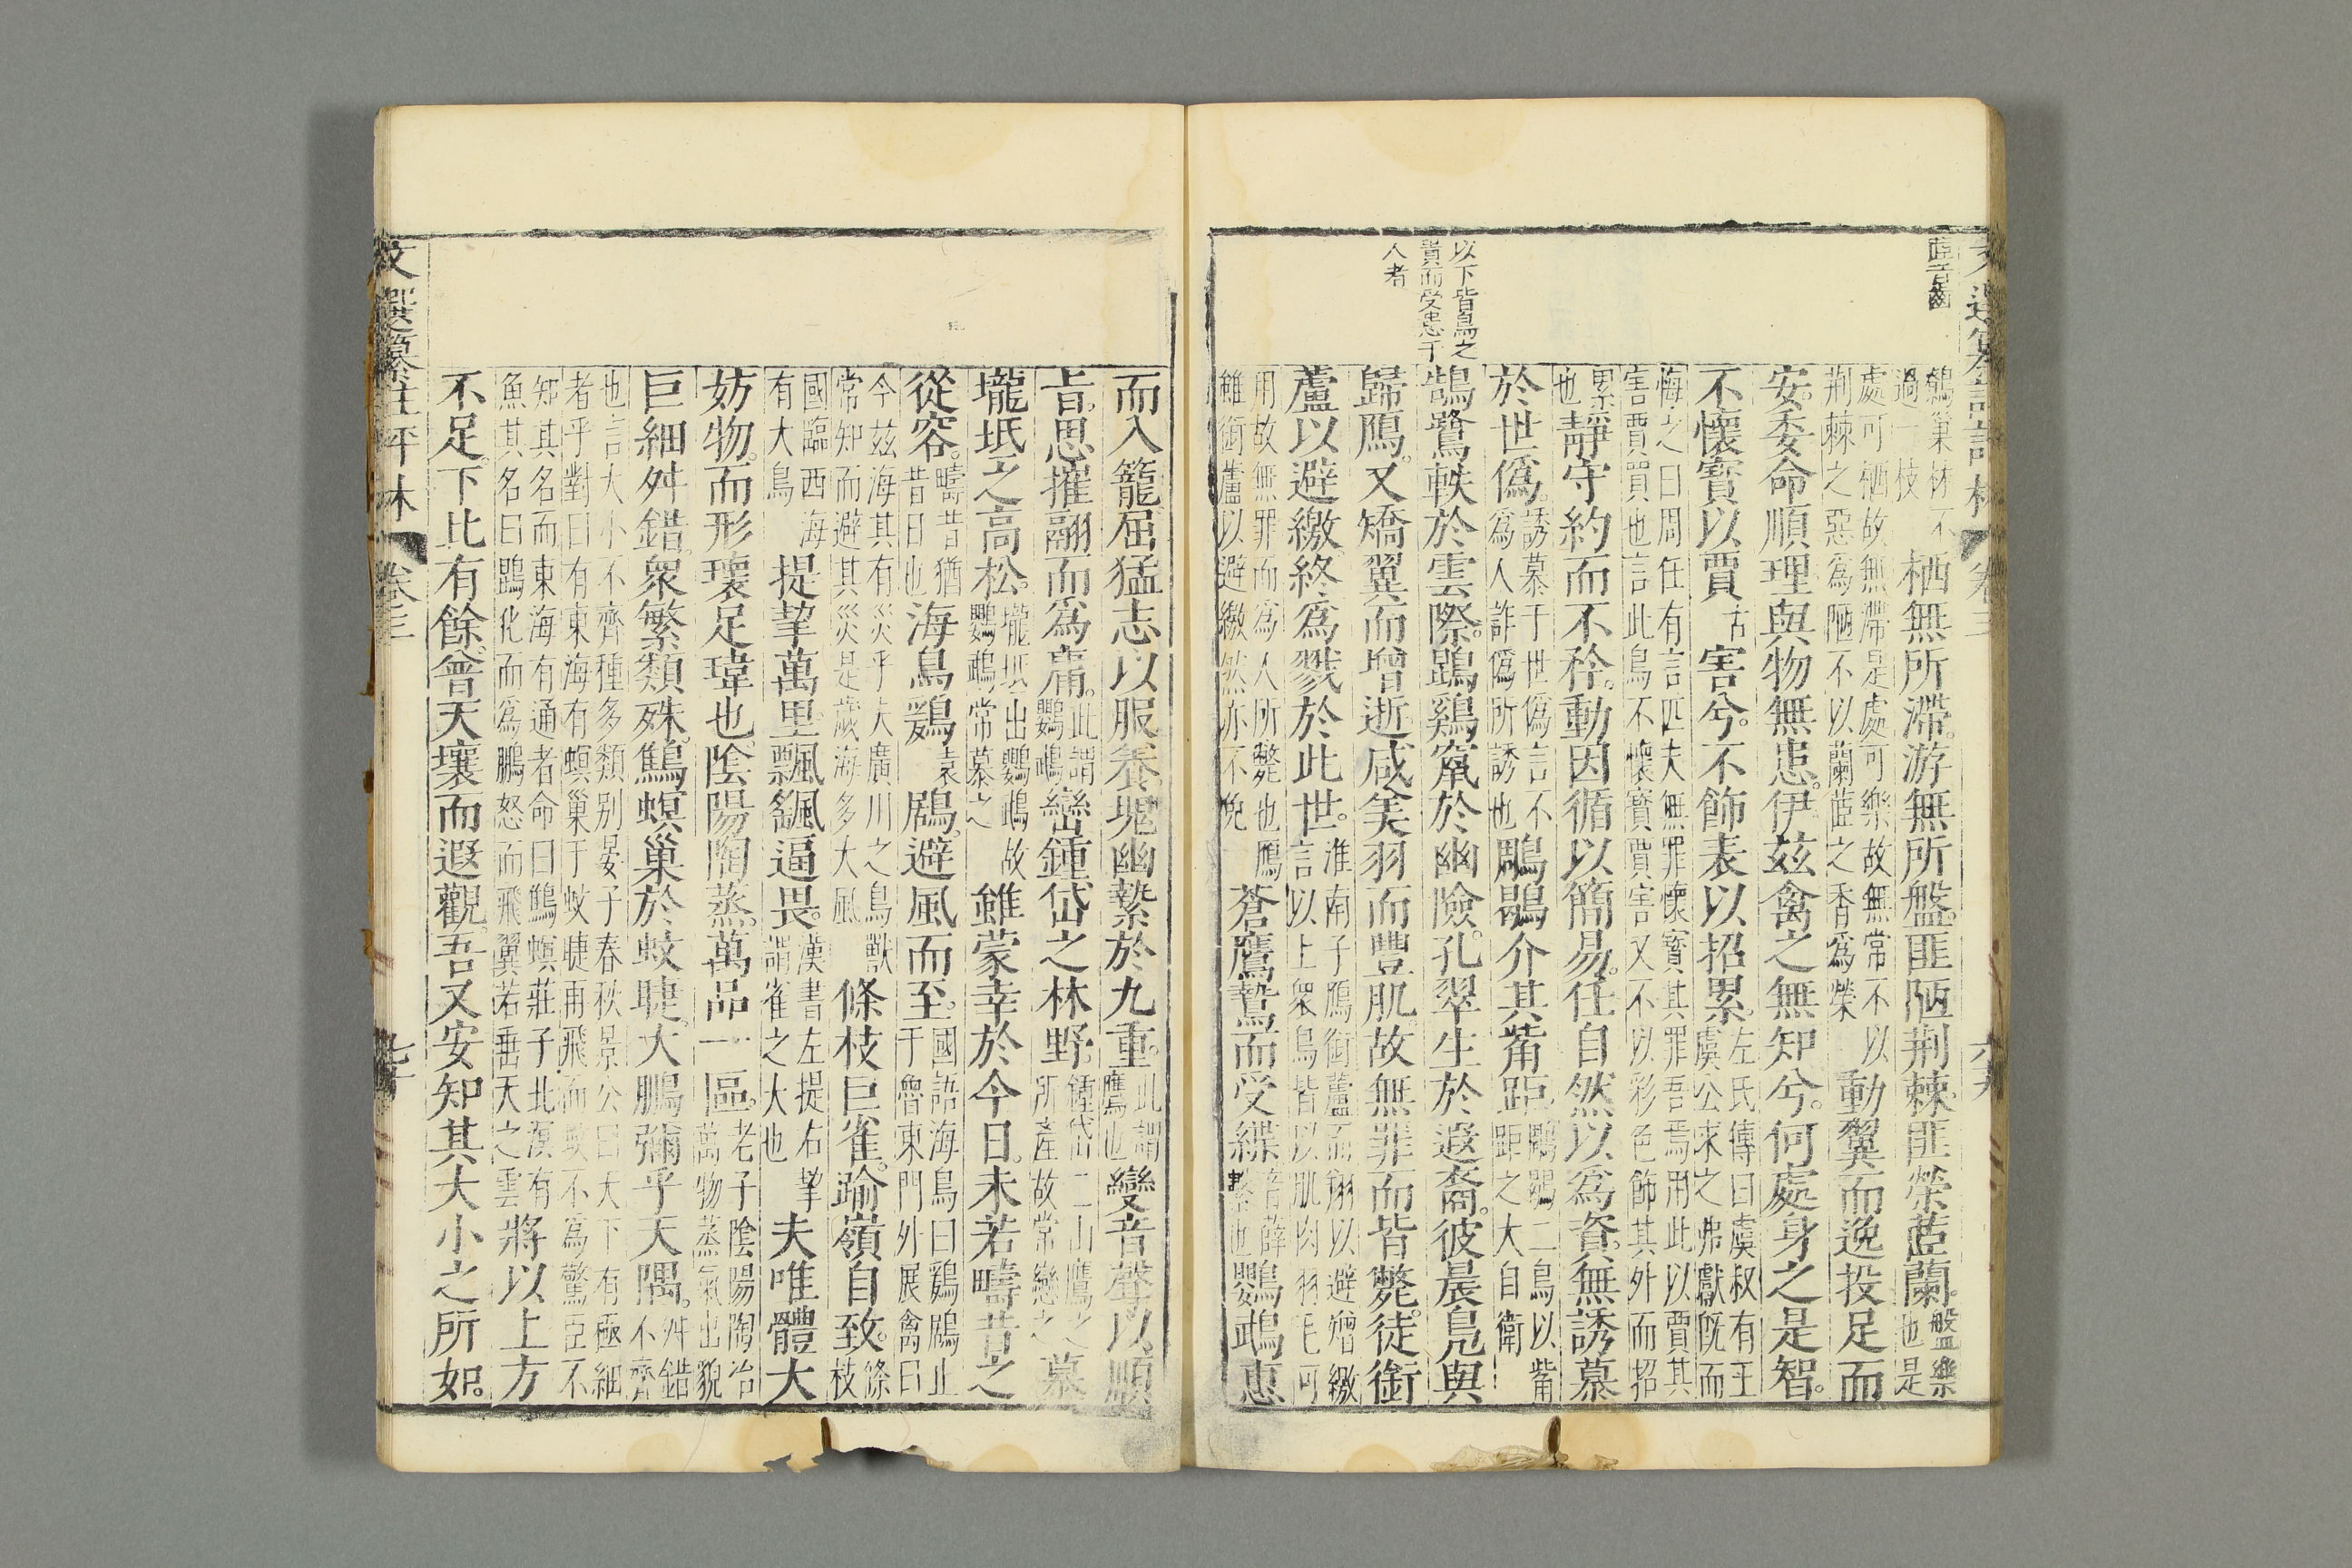 茝音齒
以下皆鳥之
貴而受患于
人者
鷦巢林不
過一枝
栖無所滯游無所盤匪陋荊棘匪榮茝蘭
盤樂
也是
處可栖故無滯是處可樂故無常不以
荊棘之惡為陋不以蘭茝之香為榮
動翼而逸投足而
安委命順理與物無患伊茲禽之無知兮何處身之是智
不懷寶以賈
古
害兮不飾表以招累
左氏傳曰虞叔有玉
虞公求之弗獻既而
悔之曰周任有言匹夫無罪懷寶其罪吾焉用此以賈其
害賈買也言此鳥不懷寶賈害又不以彩色飾其外而招
累
也
靜守約而不矜動因循以簡易任自然以為資無誘慕
於世偽
誘慕于世偽言不
為人詐偽所誘也
鵰鶡介其觜距
鵰鶡二鳥以觜
距之大自衛
鵠鷺軼於雲際鵾雞竄於幽險孔翠生於遐裔彼晨鳧與
歸鴈又矯翼而增逝咸美羽而豐肌故無罪而皆斃徒銜
蘆以避繳終為戮於此世
淮南子鴈銜蘆而翔以避矰繳
言以上衆鳥皆以肌肉羽毛可
用故無罪而為人所斃也鴈
雖銜蘆以避繳然亦不免
蒼鷹鷙而受緤
音薛
繫也
鸚鵡惠
而入籠屈猛志以服養塊幽縶於九重
此謂
鷹也
變音聲以順
旨思摧翮而為庸
此謂
鸚鵡
戀鍾岱之林野
鍾岱二山鷹之
所產故常戀之
慕
壠坻之高松
壠坻出鸚鵡故
鸚鵡常慕之
雖蒙幸於今日未若疇昔之
從容
疇昔猶
昔日也
海鳥鶢
袁
鶋避風而至
國語海鳥曰鶢鶋止
于魯東門外展禽曰
今茲海其有災乎夫廣川之鳥獸
常知而避其災是歲海多大風
條枝巨雀踰嶺自致
條
枝
國臨西海
有大鳥
提挈萬里飄颻逼畏
漢書左提右挈
謂雀之大也
夫唯體大
妨物而形瓌足瑋也陰陽陶蒸萬品一區
老子陰陽陶冶
萬物蒸氣出貌
巨細舛錯衆繁類殊鷦螟巢於蚊睫大鵬彌乎天隅
舛錯
不齊
也言大小不齊種多類別晏子春秋景公曰天下有極細
者乎對曰有東海有螟巢于蚊睫再飛而蚊不為驚臣不
知其名而東海有通者命曰鷦螟莊子北溟有
魚其名曰鵾化而為鵬怒而飛翼若垂天之雲
將以上方
不足下比有餘曾天壤而遐觀吾又安知其大小之所如
文選纂註評林
卷三
七十